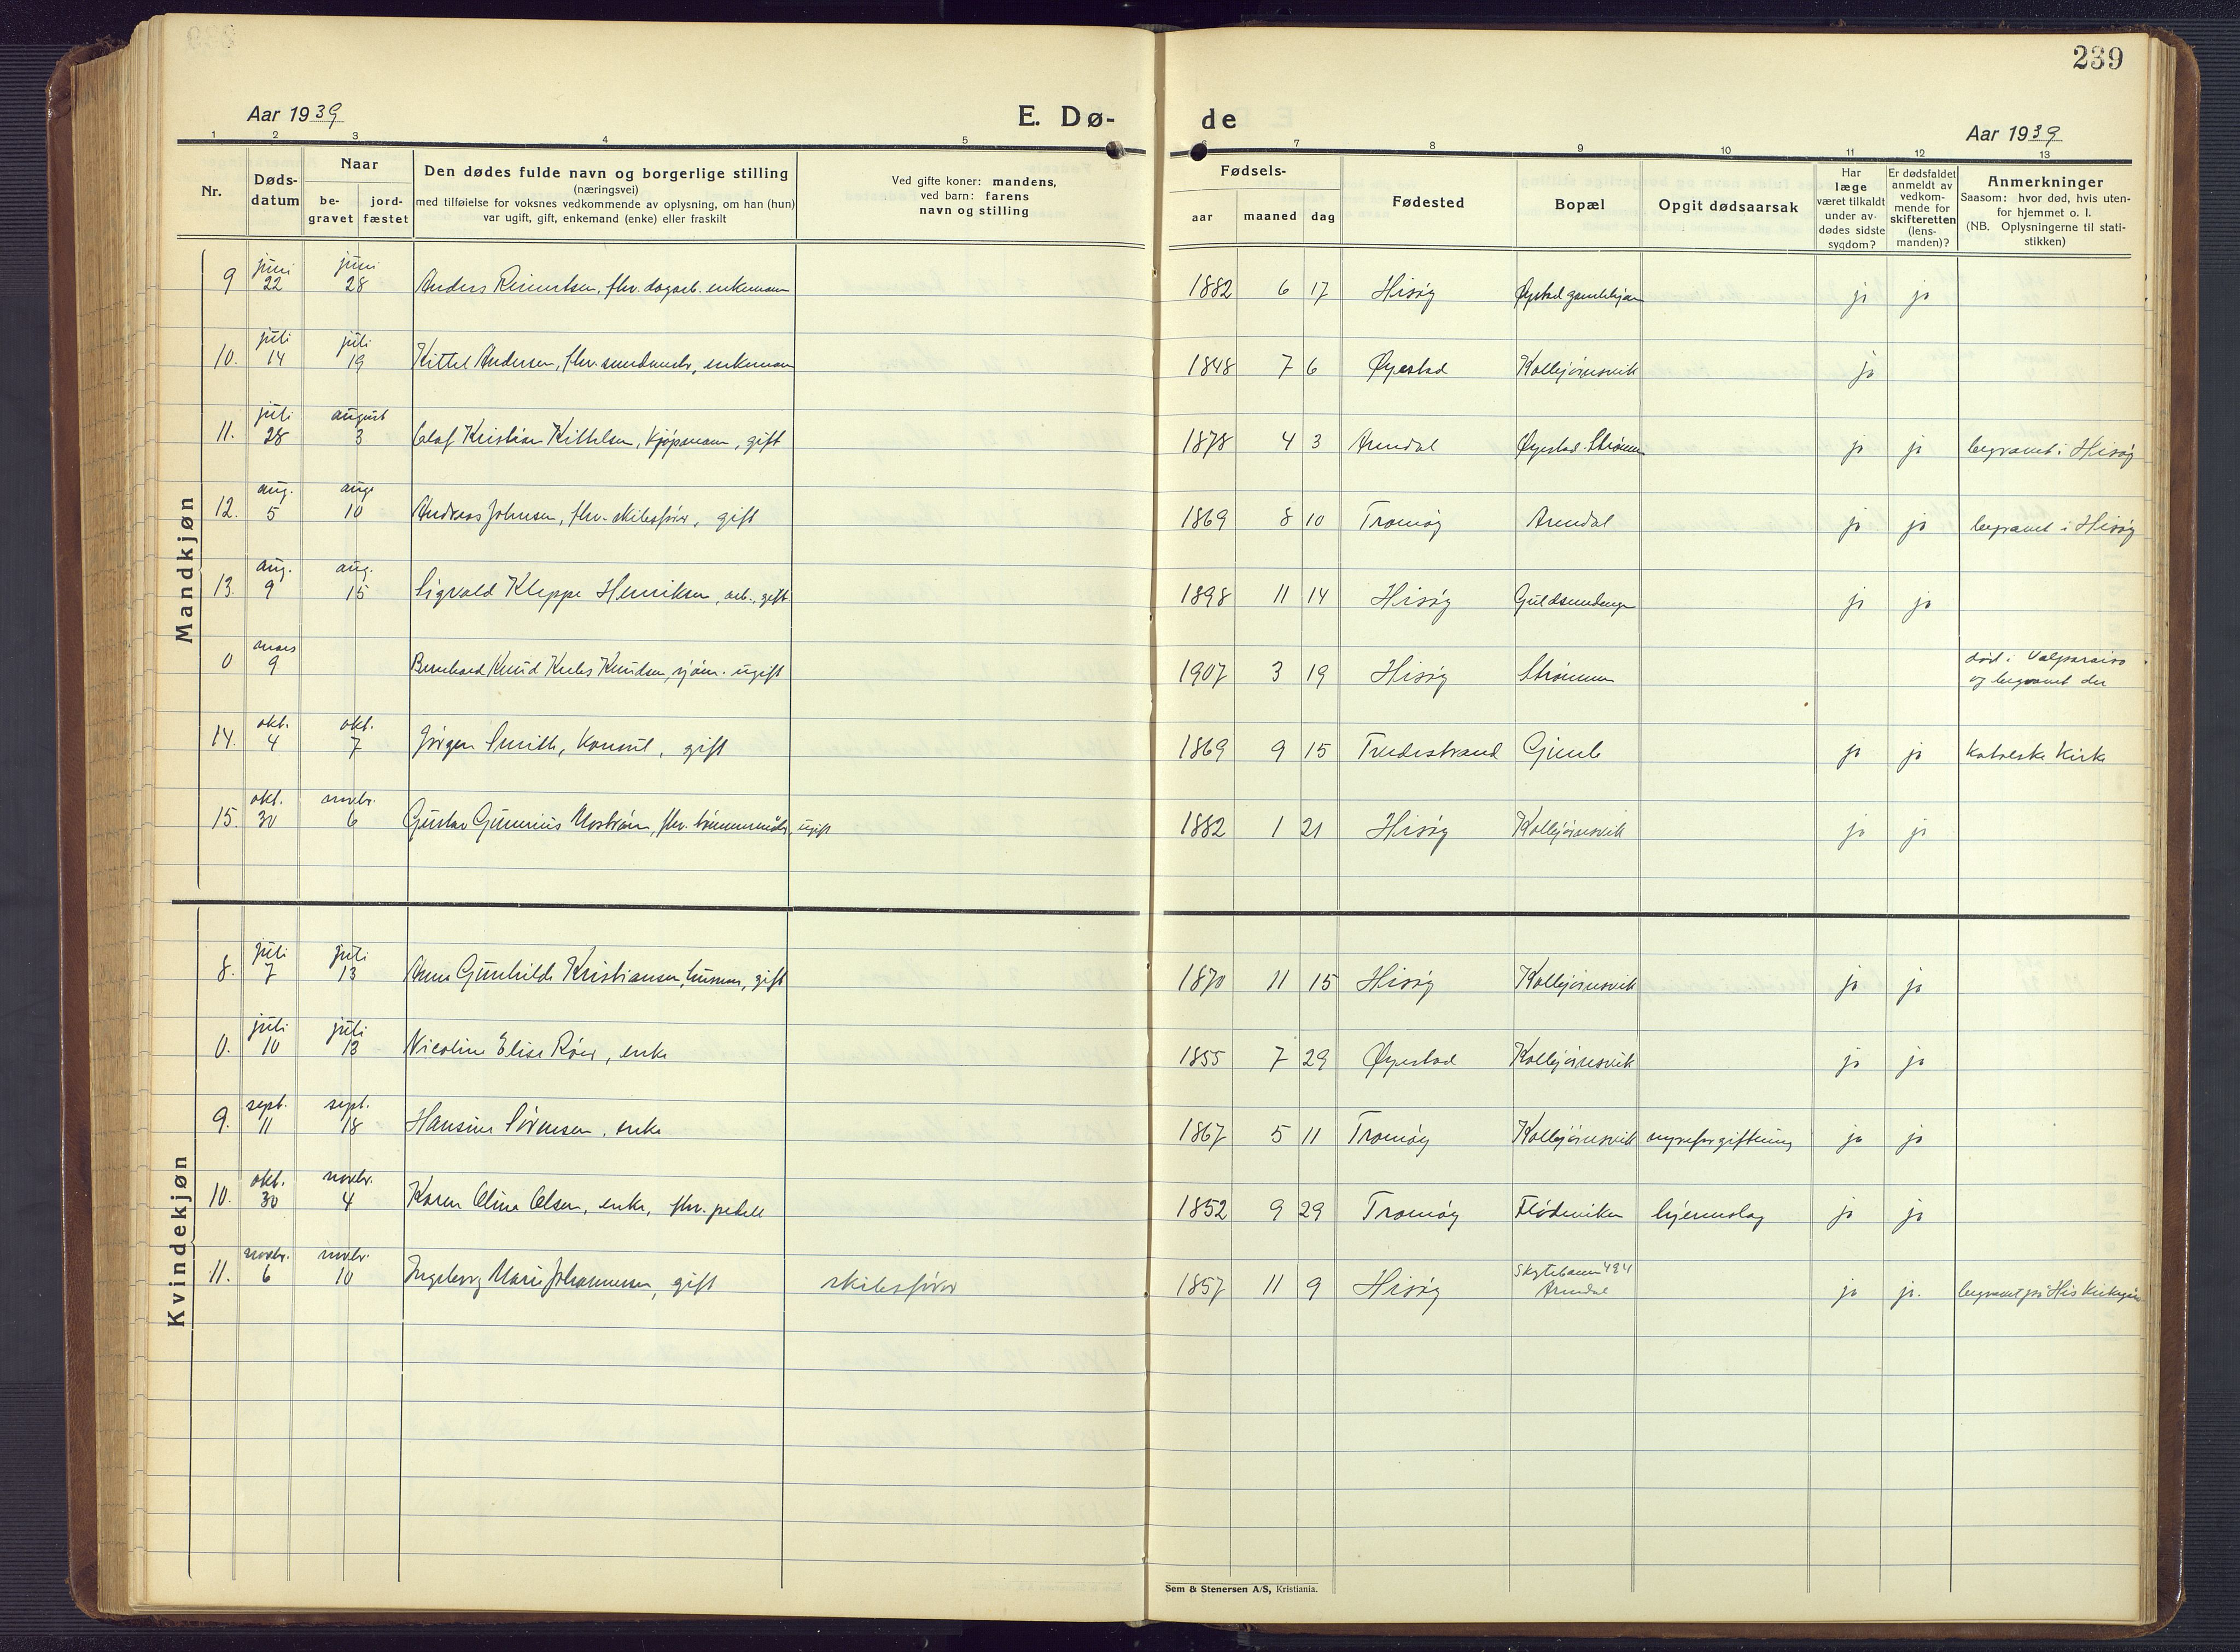 239
Aar 1939
E. Dø-
de
Aar 1939
1 2 3 4 5 6 7 8 9 10 11 12 13
Nr.
Døds-
datum
Naar
be-
gravet
jord-
fæstet
Den dødes fulde navn og borgerlige stilling
(næringsvei)
med tilføielse for voksnes vedkommende av oplysning, om han (hun)
var ugift, gift, enkemand (enke) eller fraskilt
Ved gifte koner: mandens,
ved barn: farens
navn og stilling
Fødsels-
aar maaned dag
Fødested
Bopæl
Opgit dødsaarsak
Har
læge
været tilkaldt
under av-
dødes sidste
sygdom?
Er dødsfaldet
anmeldt av
vedkom-
mende for
skifteretten
(lens-
manden)?
Anmerkninger
Saasom: hvor død, hvis uten-
for hjemmet o. l.
(NB. Oplysningerne til stati-
stikken)
Mandkjøn
9 juni 22 juni 28 Anders enkemann 1882 6 17 Hisøy Øyestad gamlehjem ja ja
10. juli 14 juli 19 Kittel Andersen, fhv. enkemann 1848 7 6 Øyestad Kolbjørnsvik ja
11. juli 28 august 3 Olaf Kristian Kittelsen, kjøpmann, gift 1878 4 3 Arendal Øyestad-Strømm ja ja begravet i Hisøy
12. aug. 5 aug. 10 Andreas Johnsen, fhv. skibsfører, gift 1869 8 10 Tromøy Arendal ja ja begravet i Hisøy
13. aug. 9 aug. 15 Sigvald Kleppe Henriksen, arb., gift 1898 11 14 Hisøy Guldsmedengen ja ja
0 mars 9 Bernhard Knud Krebs Knudsen, sjøm. ugift 1907 3 19 Hisøy Strømmen død i Valparaiso og begravet der
14. okt. 4 okt. 7 Jørgen Smith, konsul, gift 1869 9 15 Tvedestrand Gimle ja ja katolske kirke
15. okt. 30 novbr. 6 Gustav Gunnius fhv. tømmermann, ugift 1882 1 21 Hisøy Kolbjørnsvik ja ja
Kvindekjøn
8. juli 7 juli 13 Anna Gunhilde Kristiansen, husmor, gift 1870 11 15 Hisøy Kolbjørnsvik ja ja
0. juli 10 juli 13 Nicoline Elise Røer, enke 1855 7 29 Øyestad Kolbjørnsvik ja ja
9. sept. 11 sept. 18 Hansine Sørensen, enke 1867 5 11 Tromøy Kolbjørnsvik nyreforgiftning ja ja
10. okt. 30 novbr. 4 Karen Olina Olsen, enke, fhv. pedell 1852 9 29 Tromøy Flødeviken hjerneslag ja ja
11. novbr. 6 novbr. 10 Ingeborg Marie Johannesen, gift skibsfører 1857 11 9 Hisøy Skytebanen 494 Arendal ja ja. begravet på His kirkegård
Sem & Stenersen A/S, Kristiania.